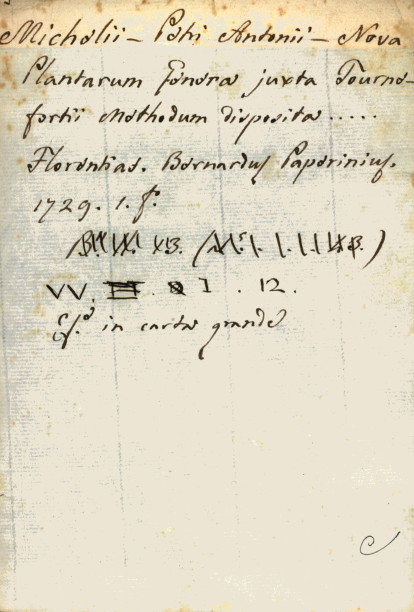 Michelii - Petri Antonii - Nova
Plantarum Genera juxta Tourne-
fortii Methodum disposita .....
Florentiae. Bernardus Paperinius.
1729. 1. f.
VV. 1. 12.
in carta grande